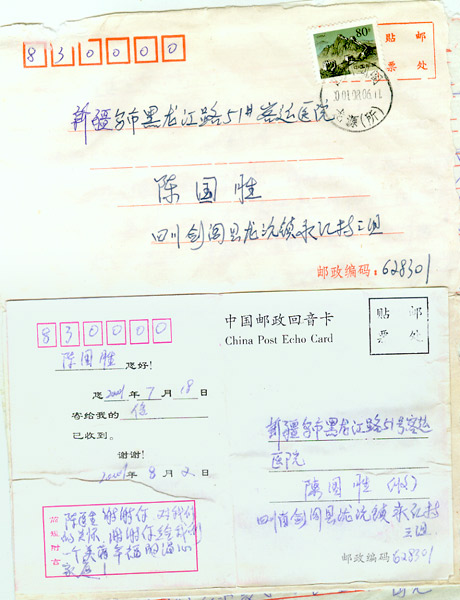 830000
80分
贴 邮
票 处
新疆乌市黑龙江路51#客运医院
陈国胜
四川剑阁县龙沅镇永江村三组
邮政编码：628301
830000
中国邮政回音卡
China Post Echo Card
贴 邮
票 处
陈国胜 您好！
您2001年7月18日
寄给我的 信
已收到。
谢谢！
2001年8月2日
新疆乌市黑龙江路51号客运
医院
陈国胜（收）
四川省剑阁县龙沅镇永江村
三组
邮政编码 628301
谢谢你 对我们
的关怀 谢谢你给我们
一个美
家庭！